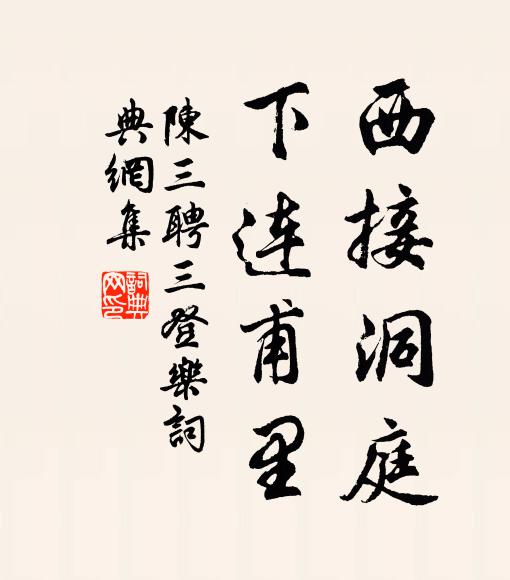 西接洞庭
下連甫里
陳三聘三登樂詞
典網集
詞典網印